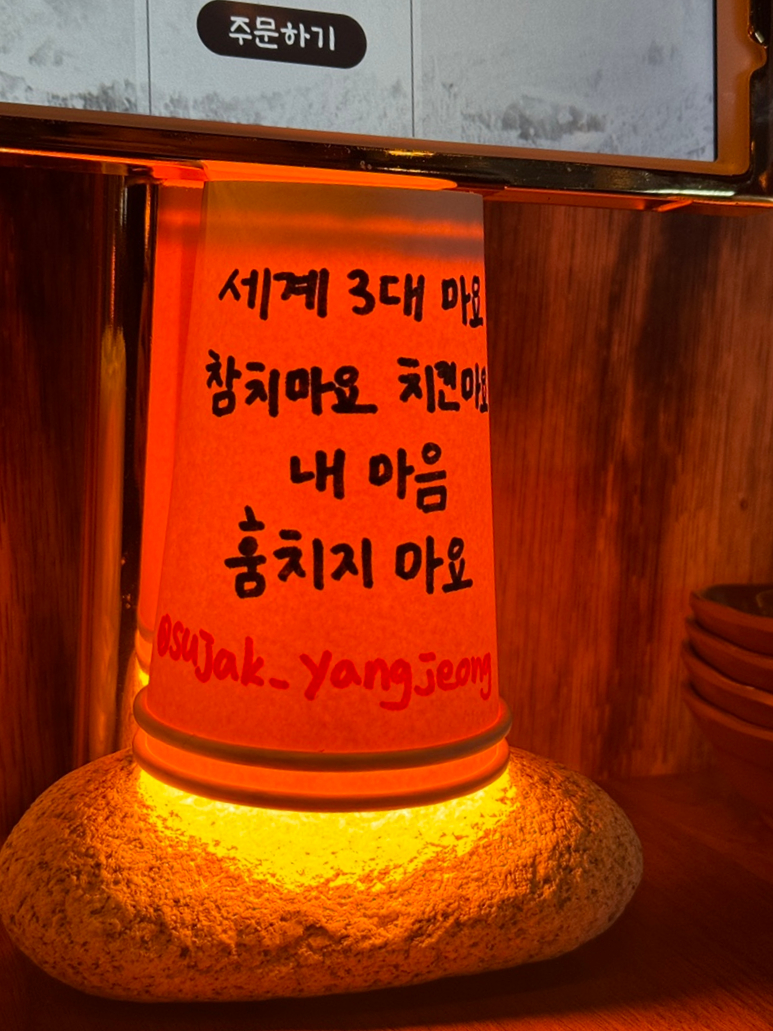 주문하기
세계 3대 마요
참치마요 치킨마요
내 마음
훔치지 마요
@sujak_yangjeong